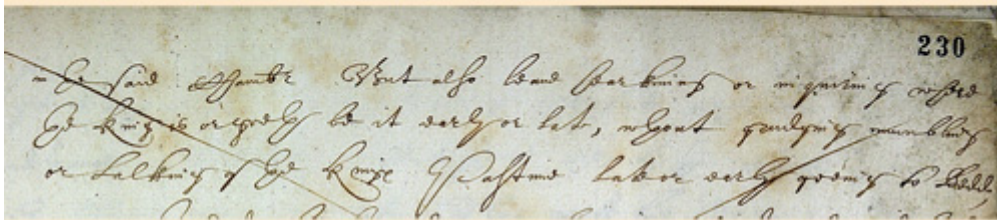 230
in the said Chambr But also leave hearkning or inquiring where
the King is or goeth be it early or late, wthout grudging mumbling
or talking of the Kings Pastime late or early goeing to Bedd,